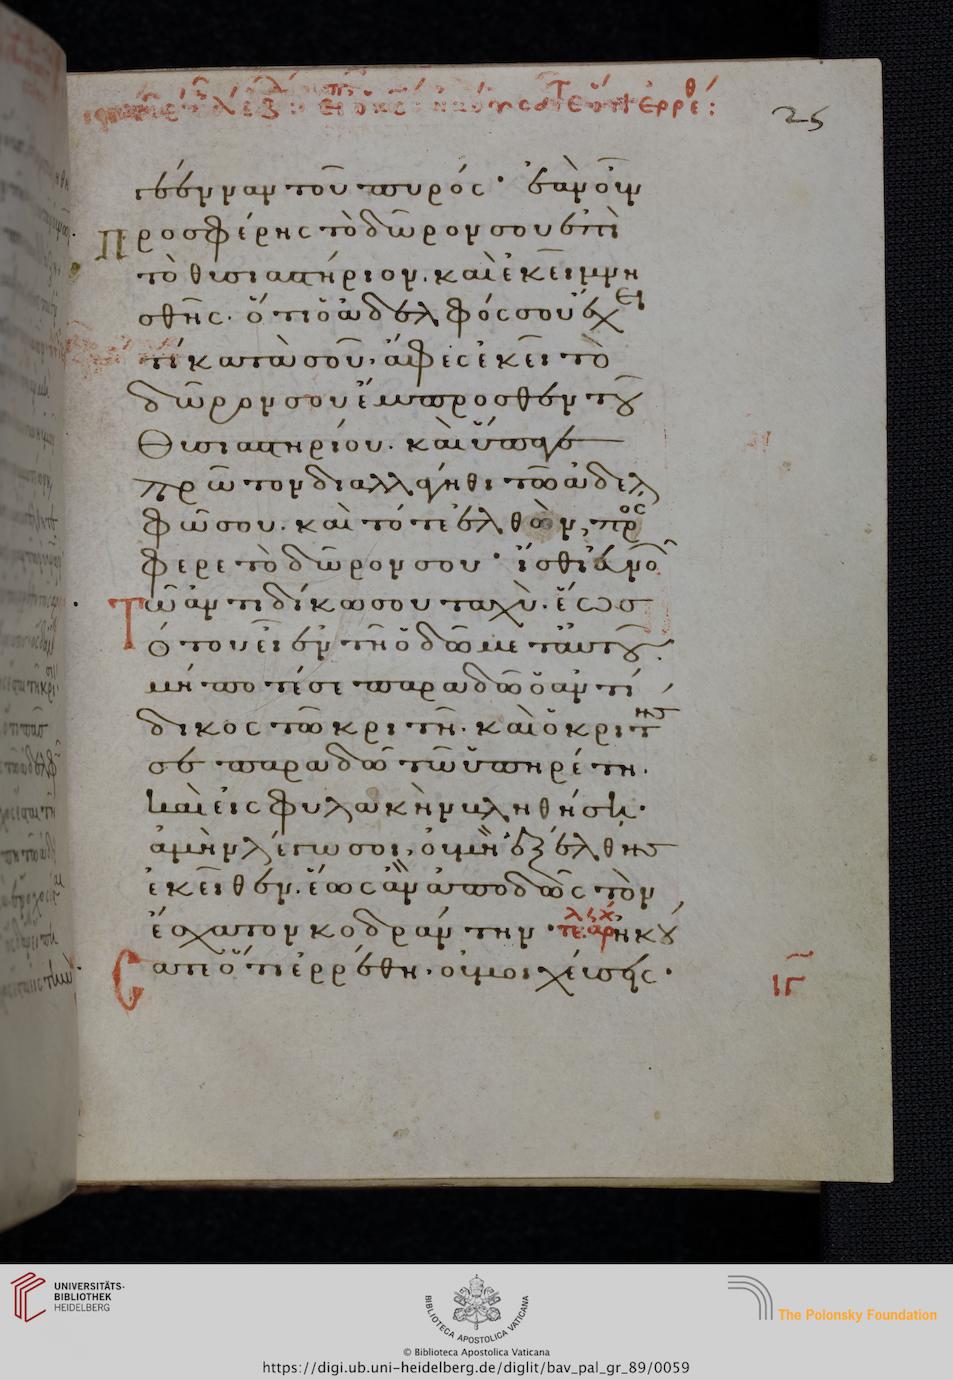 25
γέενναν τοῦ πυρός· ἐὰν οὖν
προσφέρης τὸ δῶρον σου ἐπὶ
τὸ θυσιαστήριον. καὶ ἐκεῖ μνη
σθῆς. ὅτι ὁ ἀδελφός σου ἔχει
τί κατὰ σοῦ. ἄφες ἐκεῖ τὸ
δῶρον σου ἔμπροσθεν τοῦ
θυσιαστηρίου. καὶ ὕπαγε
πρῶτον διαλλάγηθι τῶ ἀδελ
φῶ σου. καὶ τότε ἐλθὼν, πρός
φερε τὸ δῶρον σου· ἴσθι εὐνοῶν
τῶ ἀντιδίκω σου ταχὺ. ἕως
ὅτου εἶ ἐν τῆ ὁδῶ μετ αὐτοῦ.
μήποτέ σε παραδῶ ὁ ἀντί
δικος τῶ κριτῆ. καὶ ὁ κριτης
σε παραδῶ τῶ ὑπηρέτη.
καὶ εἰς φυλακὴν βληθήση.
ἀμὴν λέγω σοι, οὐ μὴ ἐξέλθης
ἐκεῖθεν. ἕως ἂν ἀποδῶς τὸν
ἔσχατον κοδράντην. ἠκού
σατε ὅτι ἐρρέθη. οὐ μοιχεύσεις.
ιγ
UNIVERSITÄTS-
BIBLIOTHEK
HEIDELBERG
BIBLIOTECA APOSTOLICA VATICANA
The Polonsky Foundation
© Biblioteca Apostolica Vaticana
https://digi.ub.uni-heidelberg.de/diglit/bav_pal_gr_89/0059